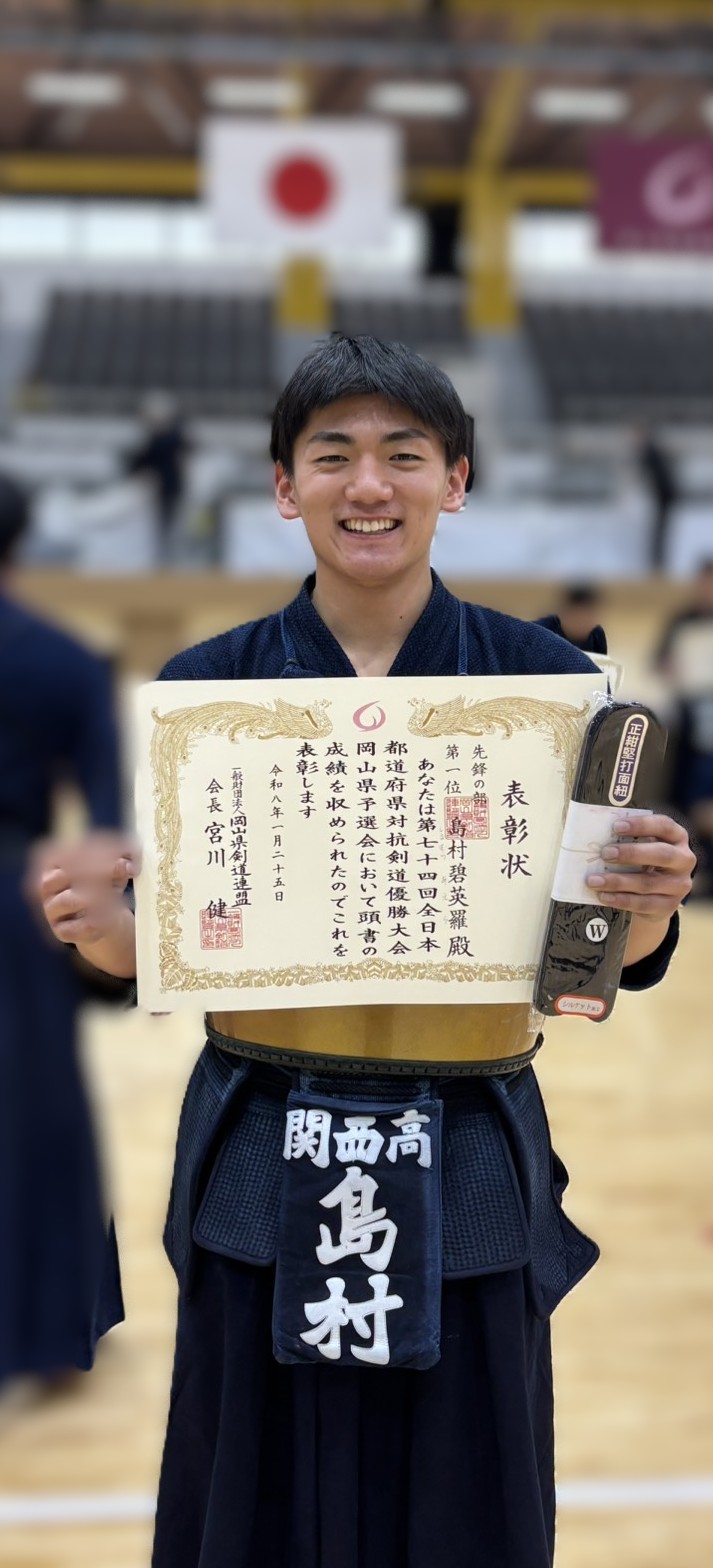 表彰状
先鋒の部
第一位 島村碧英羅殿
あなたは第七十四回全日本
都道府県対抗剣道優勝大会
岡山県予選会において頭書の
成績を収められたのでこれを
表彰します
令和八年一月二十五日
一般財団法人岡山県剣道連盟
会長 宮川 健
正紺堅打面紐
W
関西高
島村